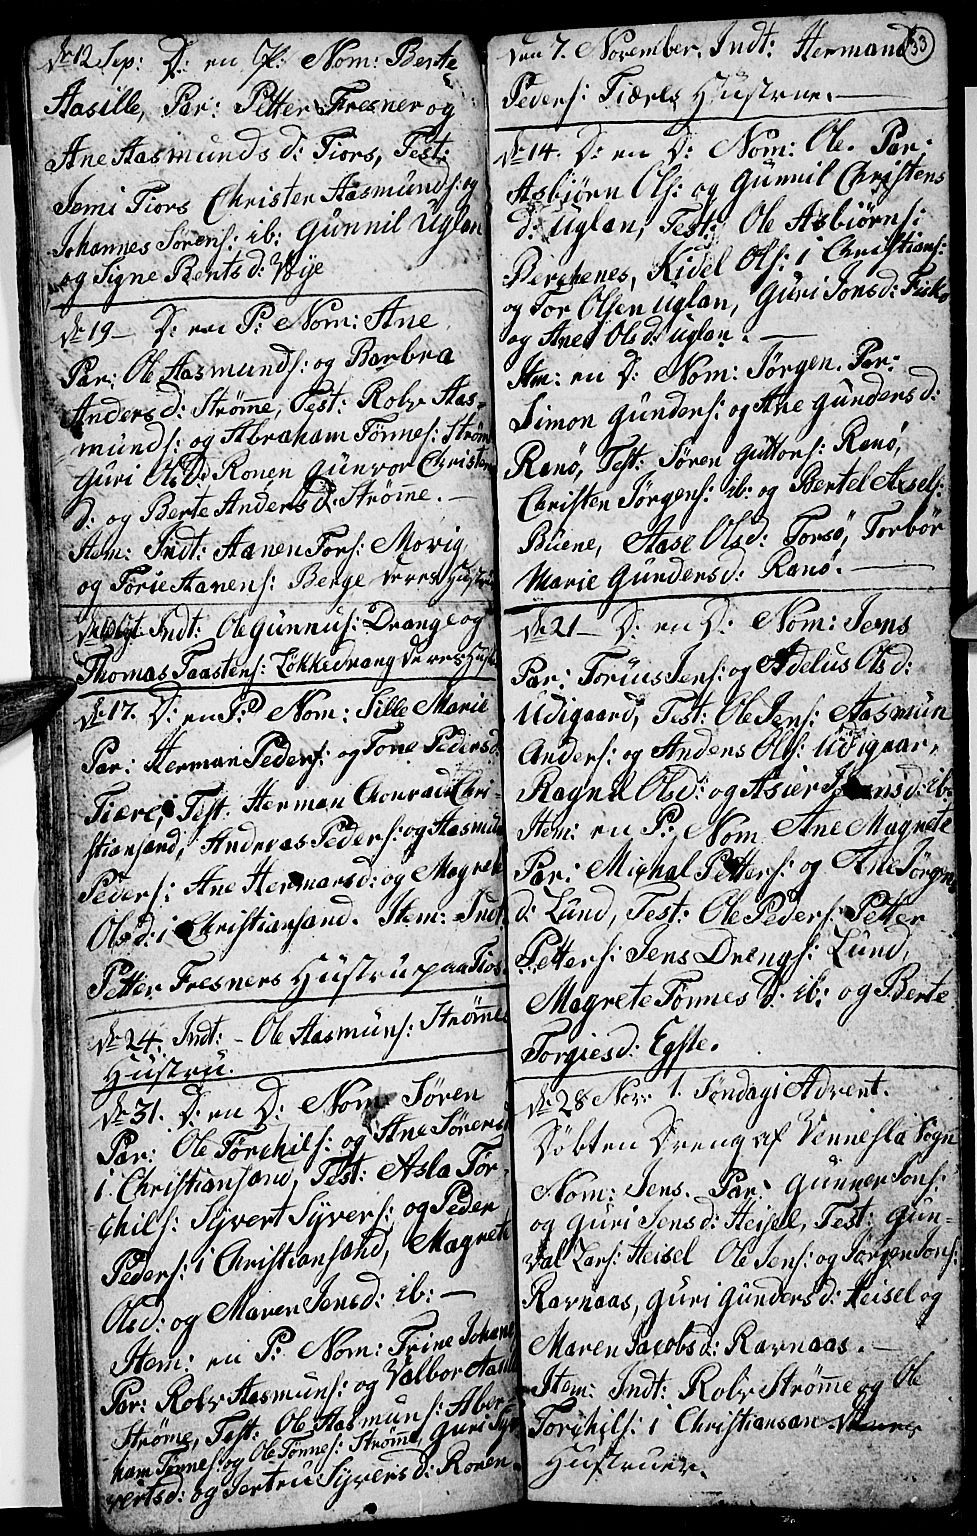 dn 12 Sep: D: en P: Nom: Berte
Aasille, Par: Petter Fresner og
Ane Aasmunds d: Tiors, Test:
Jemi Tiors Christen Aasmunds: og
Johannes Sørens: ib: Gunnil Uglan
og Signe Bents d: Vige
dn 19 – D: en P: Nom: Ane
Par: Ole Aasmunds: og Barbra
Anders d: Strømme, Test: Rolv Aas-
munds: og Abraham Tønnes: Strøm
Guri Ols d: Ronen Gunvor Christen
d: og Berte Anders d: Strømme. –
Item: Indt: Aanen Tors: Movig,
og Torie Aanens: Berge deres Hustr
Indt: Ole Gunnus: Drange og
Thomas Taastens: Løkkedrang deres Hust
dn 17. D: en P: Nom: Sille Marie
Par: Herman Peders: og Tone Peders d:
Tiære, Test: Herman Chonrad Chri-
stiansand, Andreas Peders: og Aasmun
Peders: Ane Hermans d: og Magrete
Ols d: i Christiansand. Item: Indt:
Petter Fresners Hustru paa Tios
dn 24. Indt: – Ole Aasmuns: Strømme
Hustru.
dn 31. D: en D: Nom: Søren
Par: Ole Torchils: og Ane Sørens d
i Christiansand, Test: Asla Tor-
chils: Syvert Syvers: og Peder
Peders: i Christiansand, Magrete
Ols d: og Maren Jens d: ib: –
Item: en P: Nom: Trine Johane
Par: Rolv Aasmuns: og Valbor Aasul
Strøme, Test: Ole Aasmuns: Abra-
ham Tønnes: og Ole Tønnes: Strømme, Guri Sy
verts d: og Jertru Syvers d: Ronen.
53
Den 7. November. Indt: Hermand
Peders: Tiæres Hustrue. –
dn 14. D: en D: Nom: Ole. Par:
Asbjørn Ols: og Gunnil Christens
d: Uglan, Test: Ole Asbiørns:
Berchenes, Kidel Ols: i Christians:
og Tor Olsen Uglan, Guri Jons d: Fisk
og Ane Ols d: Uglan. –
Itm: en D: Nom: Jørgen. Par:
Simon Gunders: og Ane Gunders d:
Ranø, Test: Søren Guttors: Ranø,
Christen Jørgens: ib: og Bertel Axels:
Buene, Aase Ols d: Torsø, Torbør
Marie Gunders d: Ranø. –
dn 21 – D: en D: Nom: Jens
Par: Torius Jens: og Adelus Ols d:
Udigaard, Test: Ole Jens: Aasmun
Anders: og Anders Ols: Udigaar,
Ragnil Ols d: og Asier d: ib:
Item: en P: Nom Ane Magrete
Par: Michal Petters: og Ane Jørgen
d: Lund, Test: Ole Peders: Petter
Petters: Jens Drengs: Lund,
Magrete Tønnes d: ib: og Berte
Torgies d: Egste.
dn 28 Nov: 1. Søndag i Advent.
Døbt en Dreng af Vennesla Sogn
Nom: Jens. Par: Gunner Jons:
og Guri Jens d: Heisel, Test: Gun-
val Lars: Heisel Ole Jens: og Jørgen Jons:
Ravnaas, Guri Gunders d: Heisel og
Maren Jacobs d: Ravnaas. –
Item: Indt: Rolv Strømme og Ole
Torchils: i Christiansan
Hustruer.